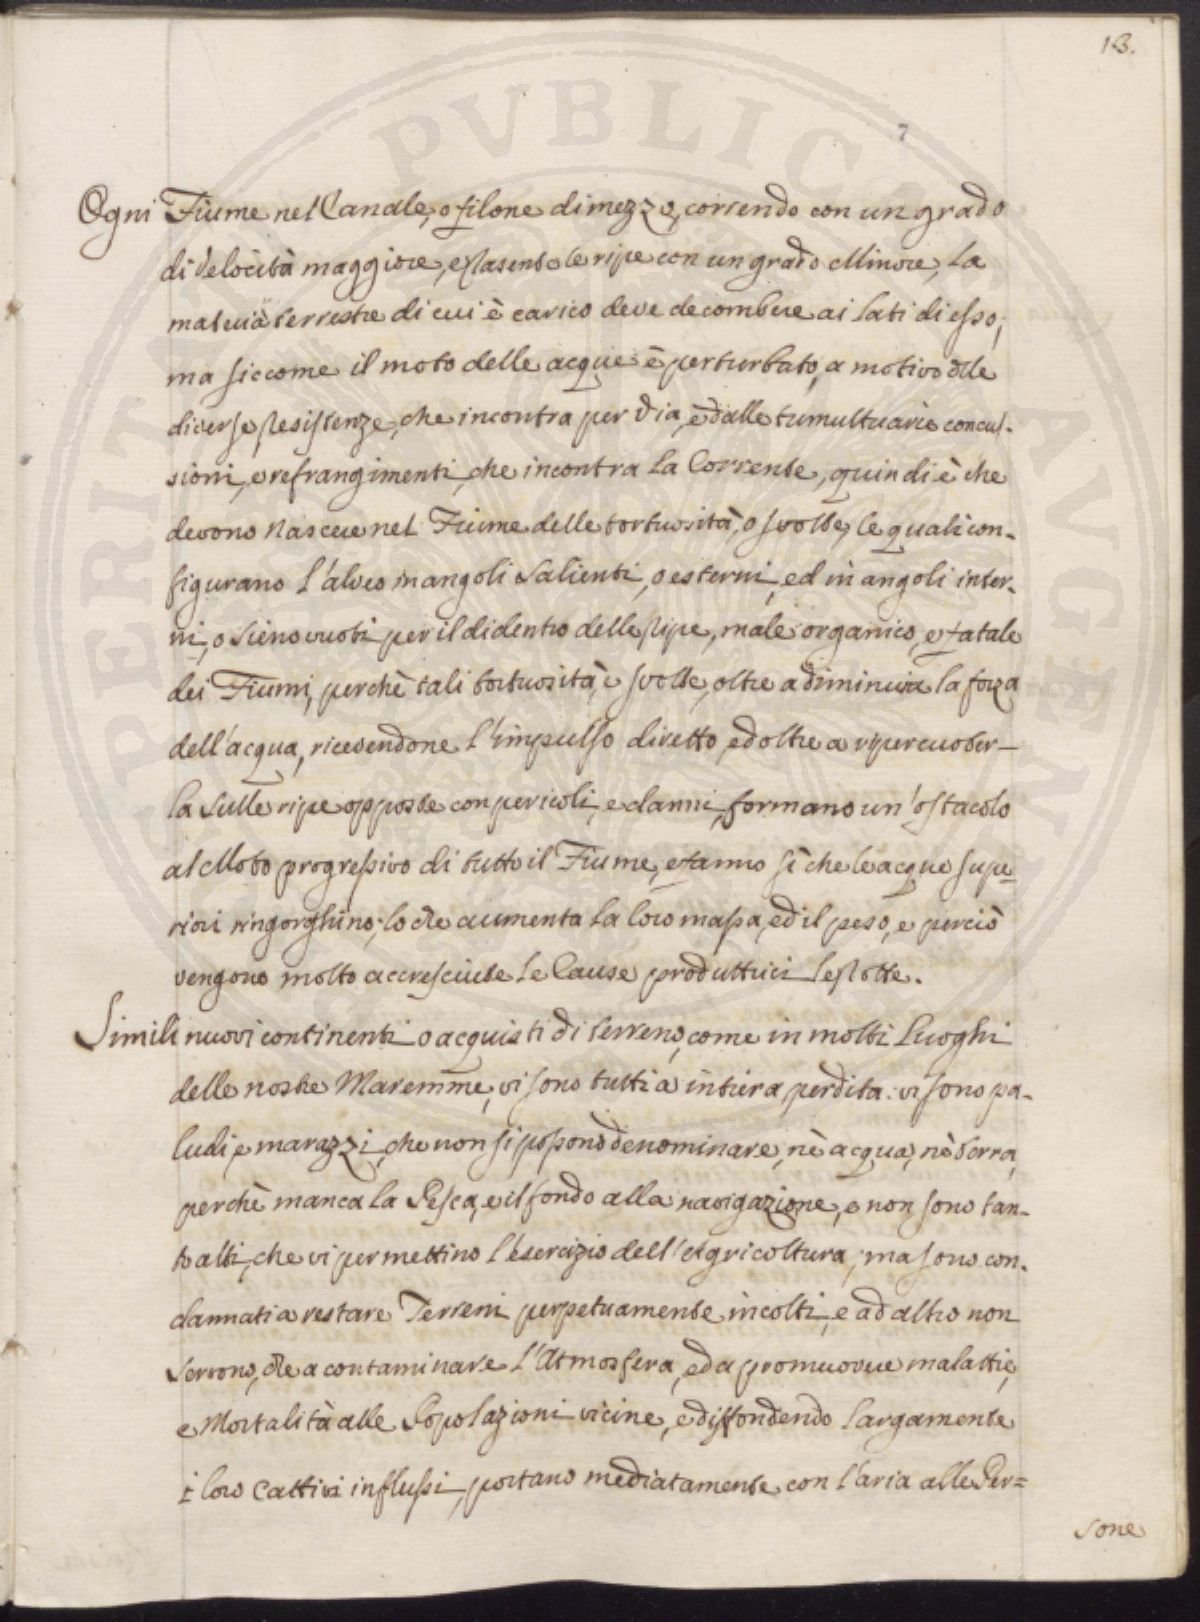 13.
7
Ogni Fiume nel Canale, o filone di mezzo, correndo con un grado
di velocità maggiore, e rasente le ripe con un grado Minore, la
materia terrestre di cui è carico deve decombere ai lati di esso;
ma siccome il moto delle acque è perturbato, a motivo delle
diverse resistenze, che incontra per via, e dalle tumultuarie concus-
sioni, e refrangimenti, che incontra la Corrente, quindi è che
devono nascere nel Fiume delle tortuosità, o svolte, le quali con-
figurano l'alveo in angoli salienti, o esterni, ed in angoli inter-
ni, o sieno vuoti per il didentro delle ripe, male organico, e fatale
dei Fiumi, perchè tali tortuosità, e svolte, oltre a diminuire la forza
dell'acqua, ricevendone l'impulso diretto, ed oltre a ripercuoter-
la sulle ripe opposte con pericoli, e danni, formano un'ostacolo
al Moto progressivo di tutto il Fiume, e fanno sì che le acque supe-
riori ringorghino; lo che aumenta la loro massa, ed il peso, e perciò
vengono molto accresciute le Cause produttrici le rotte.
Simili nuovi continenti o acquisti di terreno, come in molti Luoghi
delle nostre Maremme, vi sono tutti a intiera perdita: vi sono pa-
ludi, e marazzi, che non si possono denominare, nè acqua, nè terra,
perchè manca la Pesca, e il fondo alla navigazione, e non sono tan-
to alti, che vi permettino l'esercizio dell'Agricoltura; ma sono con-
dannati a restare Terreni perpetuamente incolti, e ad altro non
servono, che a contaminare l'Atmosfera, ed a promuovere malattie,
e Mortalità alle Popolazioni vicine, e diffondendo largamente
i loro cattivi influssi, portano mediatamente con l'aria alle Per=
sone
PERITAT
PVBLICAE
AVGEN